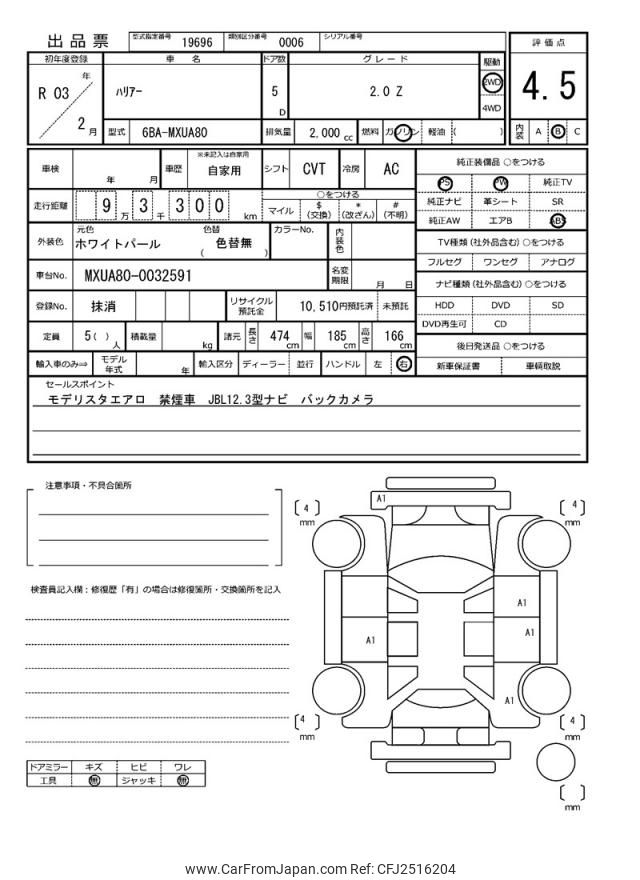 出品票
型式指定番号 19696 類別区分番号 0006 シリアル番号
初年度登録 車名 ドア数 グレード 駆動 評価点
R 03 年 2 月 ハリアー 5 D 2.0 Z 2WD 4WD 4.5
型式 6BA-MXUA80 排気量 2,000 cc 燃料 ガソリン 軽油 ( ) 内装 A B C
車検 年 月 車歴 ※未記入は自家用 自家用 シフト CVT 冷房 AC
走行距離 9 万 3 千 3 0 0 km
○をつける
マイル $ (交換) * (改ざん) # (不明)
外装色 元色 ホワイトパール 色替 色替無 ( ) カラーNo. 内装色
車台No. MXUA80-0032591 名変期限 月 日
登録No. 抹消 リサイクル預託金 10,510円預託済 未預託
定員 5( ) 人 積載量 kg 諸元 長さ 474 cm 幅 185 cm 高さ 166 cm
輸入車のみ⇒ モデル年式 年 輸入区分 ディーラー 並行 ハンドル 左 右
純正装備品 ○をつける
PS PW 純正TV
純正ナビ 革シート SR
純正AW エアB ABS
TV種類 (社外品含む) ○をつける
フルセグ ワンセグ アナログ
ナビ種類 (社外品含む) ○をつける
HDD DVD SD
DVD再生可 CD
後日発送品 ○をつける
新車保証書 車輌取説
セールスポイント
モデリスタエアロ 禁煙車 JBL12.3型ナビ バックカメラ
注意事項・不具合箇所
検査員記入欄：修復歴「有」の場合は修復箇所・交換箇所を記入
ドアミラー キズ ヒビ ワレ
工具 無 ジャッキ 無
A1
[ 4 ] mm
[ 4 ] mm
A1
A1
A1
A1
[ 4 ] mm
[ 4 ] mm
[ ] mm
www.CarFromJapan.com Ref: CFJ2516204